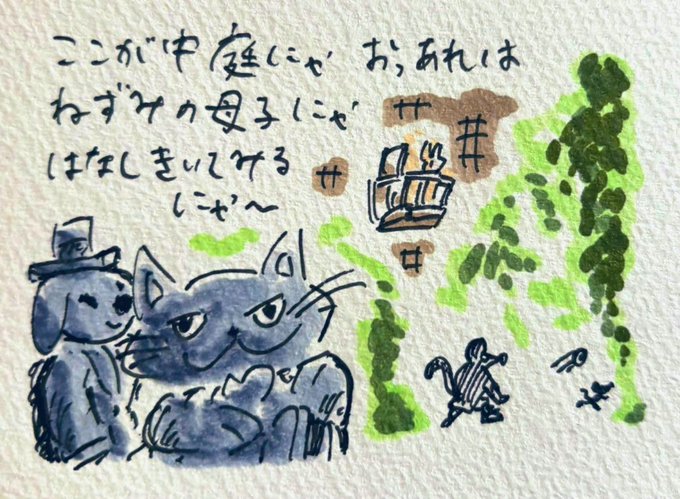 ここが中庭にゃ おっあれは
ねずみの母子にゃ
はなしきいてみる
にゃ〜